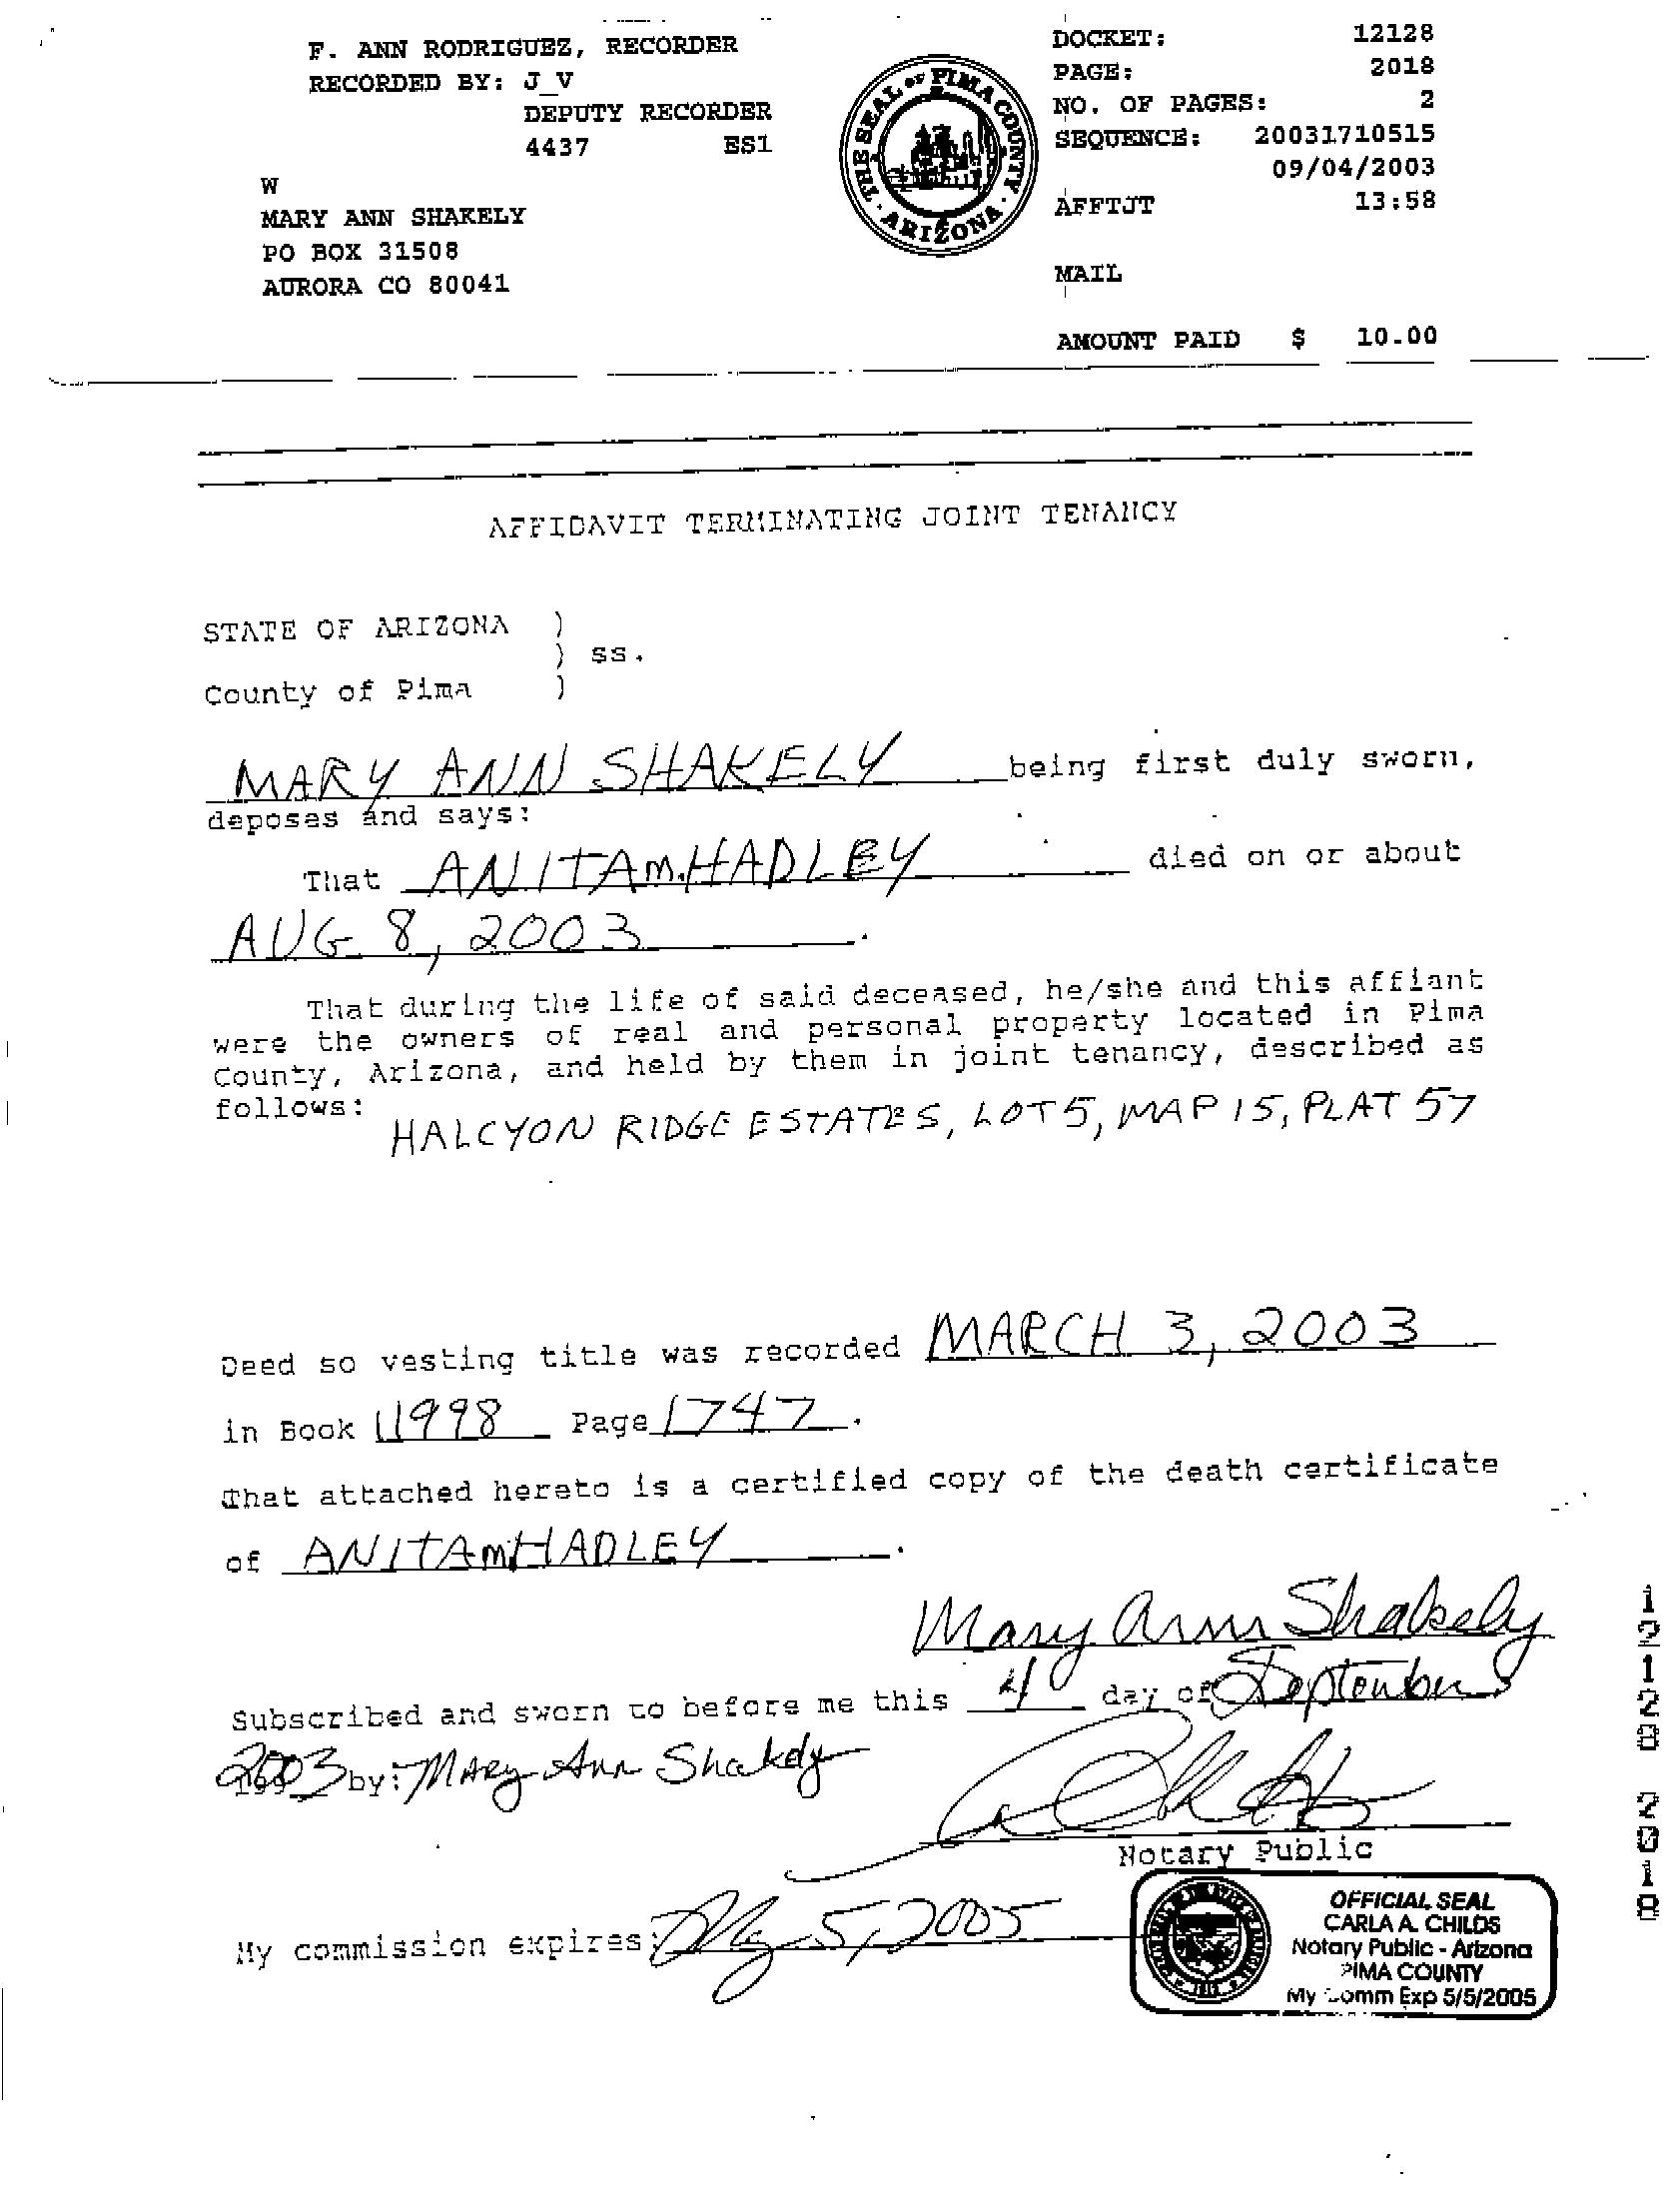 F. ANN RODRIGUEZ, RECORDER
RECORDED BY: J_V
DEPUTY RECORDER
4437 ES1
W
MARY ANN SHAKELY
PO BOX 31508
AURORA CO 80041
THE SEAL OF PIMA COUNTY · ARIZONA ·
DOCKET: 12128
PAGE: 2018
NO. OF PAGES: 2
SEQUENCE: 20031710515
09/04/2003
AFFTJT 13:58
MAIL
AMOUNT PAID $ 10.00
AFFIDAVIT TERMINATING JOINT TENANCY
STATE OF ARIZONA )
) ss.
County of Pima )
MARY ANN SHAKELY being first duly sworn,
deposes and says:
That ANITA M. HADLEY died on or about
AUG 8, 2003.
That during the life of said deceased, he/she and this affiant
were the owners of real and personal property located in Pima
County, Arizona, and held by them in joint tenancy, described as
follows:
HALCYON RIDGE ESTATES, LOT 5, MAP 15, PLAT 57
Deed so vesting title was recorded MARCH 3, 2003
in Book 11998 Page 1747.
That attached hereto is a certified copy of the death certificate
of ANITA M HADLEY.
Mary Ann Shakely
Subscribed and sworn to before me this 4 day of September
2003 by: Mary Ann Shakely
Notary Public
My commission expires: May 5, 2005
OFFICIAL SEAL
CARLA A. CHILDS
Notary Public - Arizona
PIMA COUNTY
My Comm Exp 5/5/2005
12128 2018